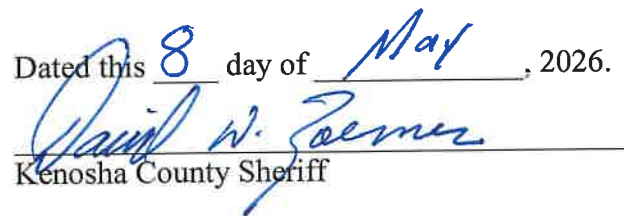 Dated this 8 day of May, 2026.
David W. Zoerner
Kenosha County Sheriff